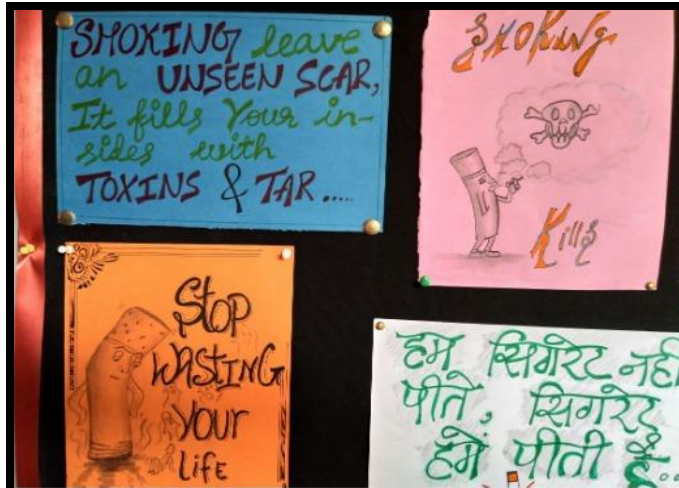 SMOKING leave
an UNSEEN SCAR,
It fills Your in-
sides with
TOXINS & TAR.....
Smoking
Kills
Stop
WASTING
your
life
हम सिगरेट नही
पीते, सिगरेट
हमें पीती है..